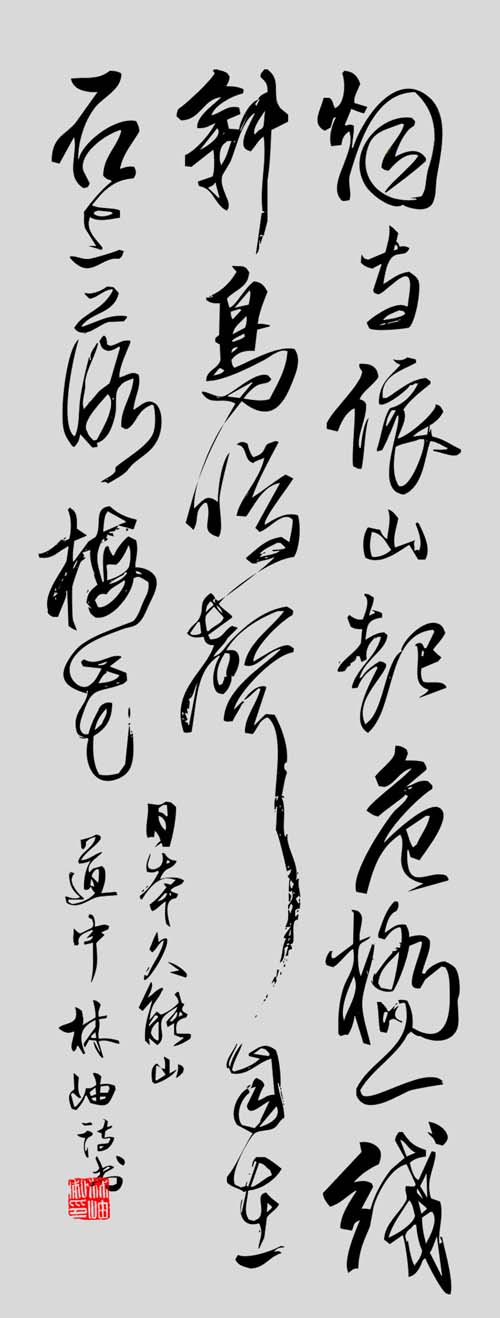 烟寺依山起危桥一线
斜鸟鸣声自在
石上落梅花
日本久能山
道中林岫诗书